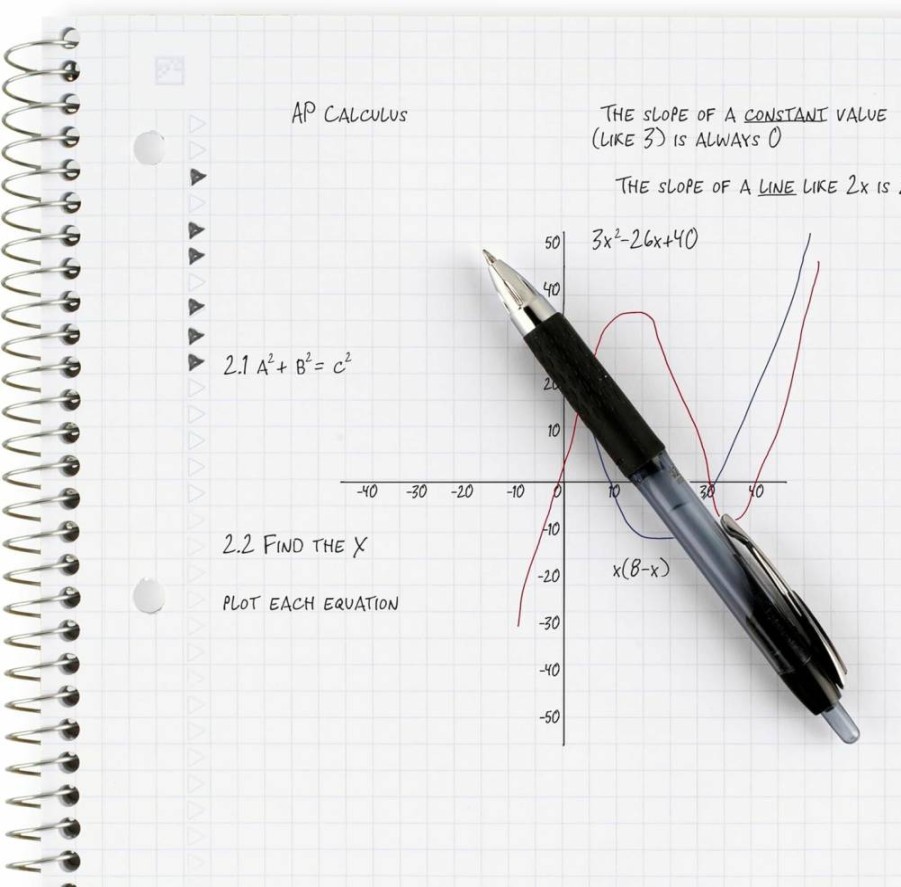 AP CALCULUS
THE SLOPE OF A CONSTANT VALUE
(LIKE 3) IS ALWAYS 0
THE SLOPE OF A LINE LIKE 2x IS
3x²-26x+40
50
40
20
10
2.1 A²+ B²= C²
-40 -30 -20 -10 0 10 30 40
-10
2.2 FIND THE X
x(8-x)
-20
PLOT EACH EQUATION
-30
-40
-50